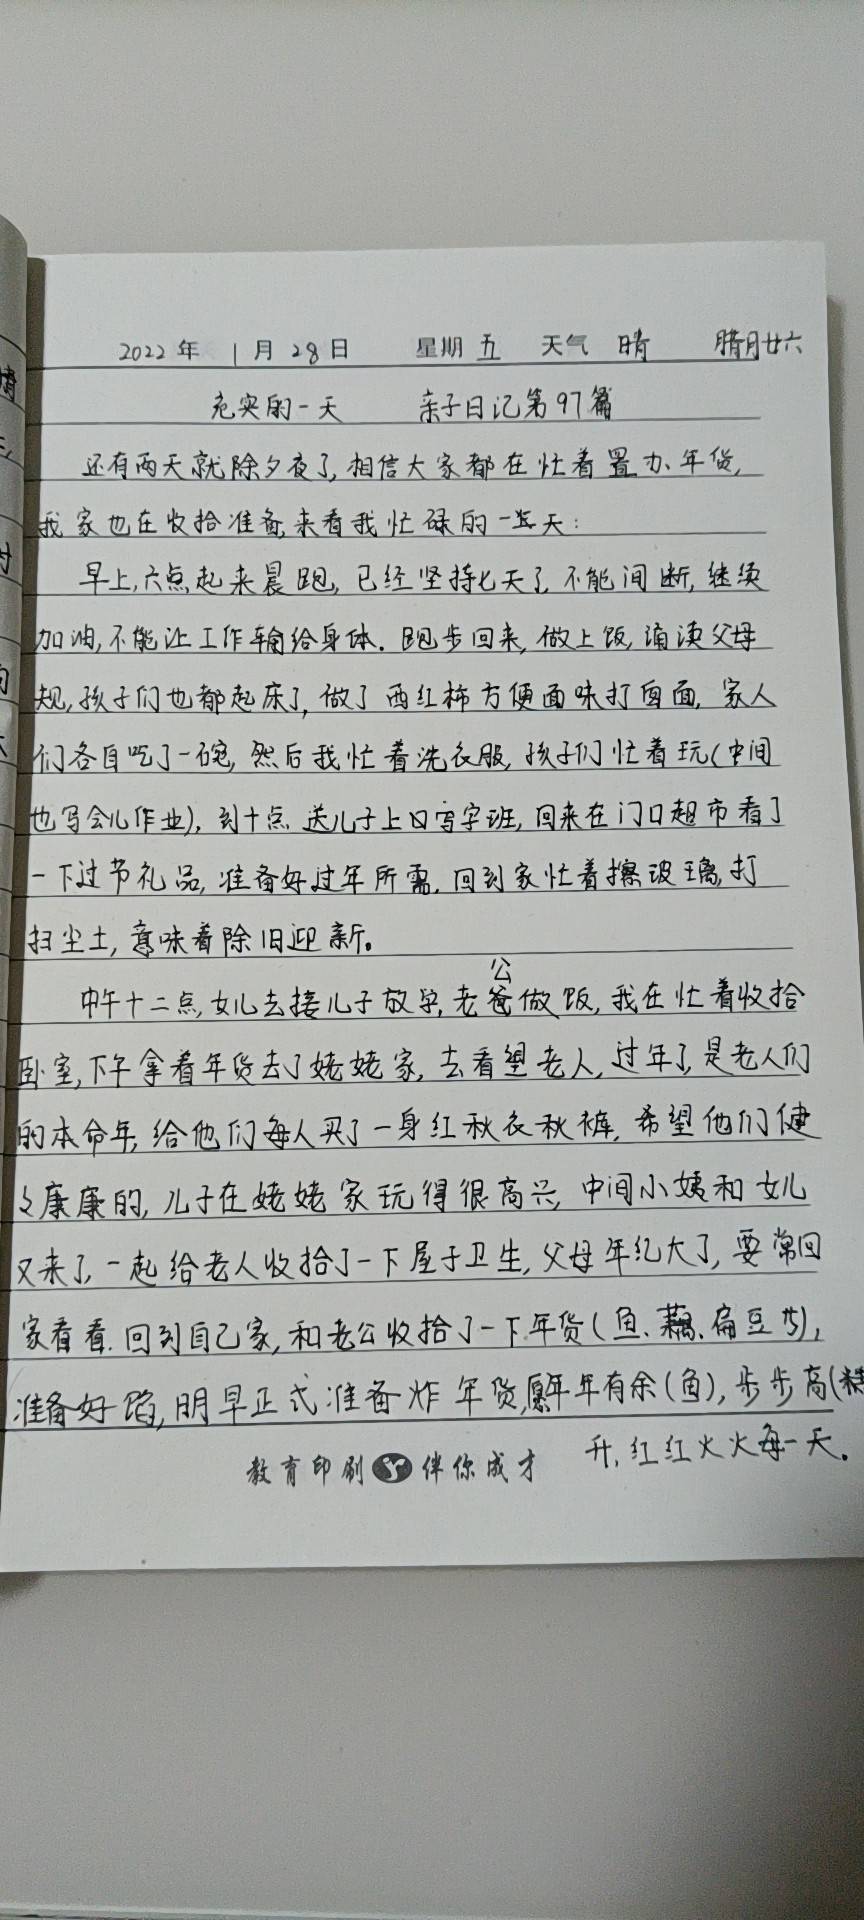 2022年 1月28日 星期五 天气 晴 腊月廿六
充实的一天 亲子日记第97篇
还有两天就除夕夜了,相信大家都在忙着置办年货,
我家也在收拾准备,来看我忙碌的一天:
早上,六点起来晨跑,已经坚持七天了,不能间断,继续
加油,不能让工作输给身体.跑步回来,做上饭,诵读父母
规,孩子们也都起床了,做了西红柿方便面味打卤面,家人
们各自吃了一碗,然后我忙着洗衣服,孩子们忙着玩(中间
也写会儿作业),到十点送儿子上口写字班,回来在门口超市看了
一下过节礼品,准备好过年所需.回到家忙着擦玻璃,打
扫尘土,意味着除旧迎新。
中午十二点,女儿去接儿子放学,老公做饭,我在忙着收拾
卧室,下午拿着年货去了姥姥家,去看望老人,过年了,是老人们
的本命年,给他们每人买了一身红秋衣秋裤,希望他们健
健康康的,儿子在姥姥家玩得很高兴,中间小姨和女儿
又来了,一起给老人收拾了一下屋子卫生,父母年纪大了,要常回
家看看.回到自己家,和老公收拾了一下年货(鱼、藕、扁豆),
准备好馅,明早正式准备炸年货,愿年年有余(鱼),步步高(糕
升,红红火火每一天。
教育印刷 伴你成才